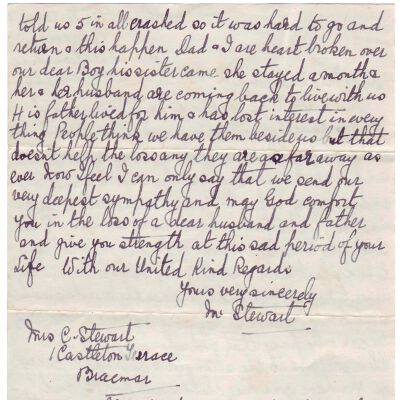 told us 5 in all crashed so it was hard to go and
return & this happen Dad & I are heart broken over
our dear Boy his sister came she stayed a month &
her & her husband are coming back to live with us
4 is father lived for him & has lost interest in every
thing People think we have them beside us but that
doesn't help the loss any they are as far away as
ever now I feel I can only say that we send our
very deepest sympathy and may God comfort
you in the loss of a dear husband and father
and give you strength at this sad period of your
life With our United Kind Regards
Yours very sincerely
M Stewart
Mrs C. Stewart
1 Castleton Terrace
Braemar